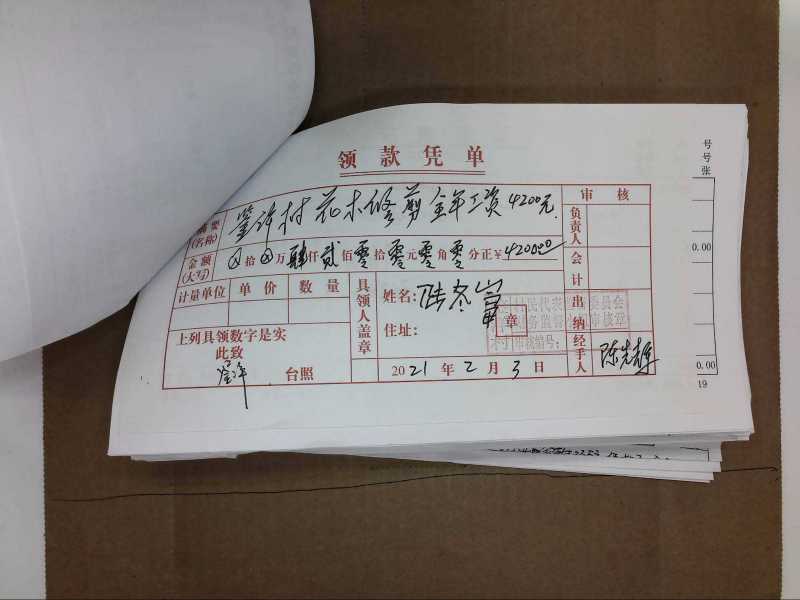 领款凭单
摘要 村花木修剪全年工资4200元 审核
(名称)
金额 拾 万肆仟贰佰零拾零元零角零分正¥4200.00 负责人
(大写)
计量单位 单价 数量 具领人盖章 姓名:陆冬富 会计
住址: 章 出纳
上列具领数字是实
此致
台照 2021年2月3日 经手人 陈先
村民代表 委员会
务监督 审核章
审核编号:
号
号
张
0.00
0.00
19